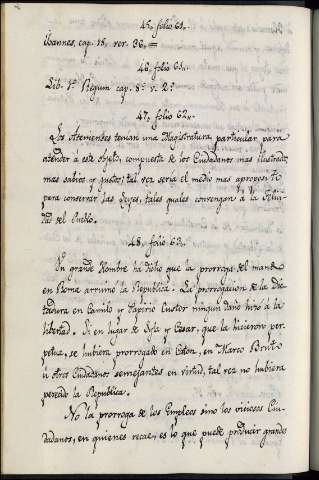 45, folio 61.
Joannes, cap. 18, ver. 36. =
46, folio 61.
Lib. 1º Regum cap. 8º v. 2º
47, folio 62.
Los Atenienses tenian una Magistratura particular para
atender à este objeto, compuesta de los Ciudadanos mas ilustrados,
mas sabios y justos; tal vez seria el medio mas à proposito
para conservar las Leyes, tales quales convengan à la Felici-
dad del Pueblo.
48, folio 63.
Un grande Hombre ha dicho que la prorroga del mando
en Roma arruinò la Republica. La prorrogacion de la Dic-
tadura en Camilo y Papirio Cursor ningun daño hizo à la
libertad. Si en lugar de Syla y Cesar, que la hicieron per-
petua, se hubiera prorrogado en Caton, en Marco Bruto
ù otros Ciudadanos semejantes en virtud, tal vez no hubiera
perecido la Republica.
No la prorroga de los Empleos sino los viciosos Ciu-
dadanos, en quienes recae, es lo que puede producir grandes